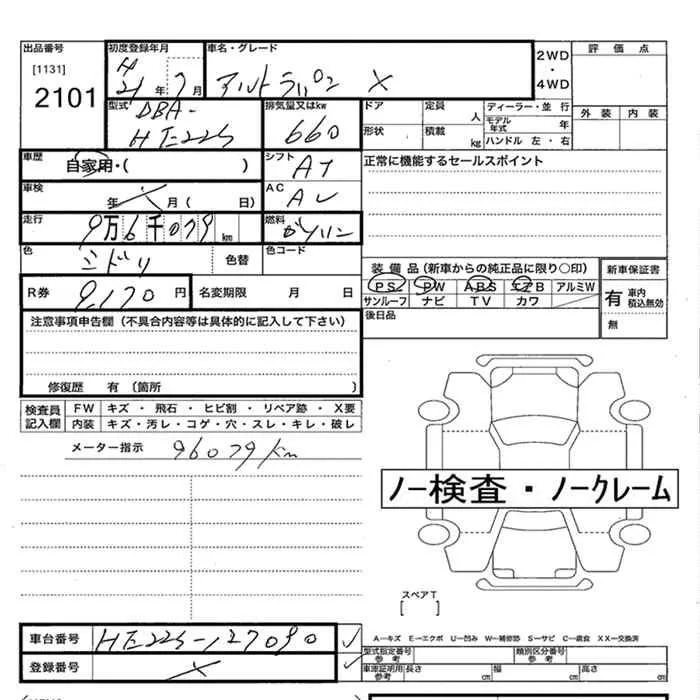 出品番号
[1131]
2101
初度登録年月
H
21 年 7 月
車名・グレード
アルトラパン X
2WD
・
4WD
評 価 点
外 装 内 装
型式
DBA-
HE22S
排気量又はkw
660
ドア
形状
定員
人
積載
kg
ディーラー・並 行
モデル
年式
年
ハンドル 左 ・ 右
車歴
自家用・( )
シフト
AT
正常に機能するセールスポイント
車検
年 月( 日)
AC
走行
9万6千079km
燃料
ガソリン
色
ミドリ
色替
色コード
R券
9,170 円
名変期限 月 日
装 備 品(新車からの純正品に限り〇印)
PS PW ABS エアB アルミW
サンルーフ ナビ TV カワ
後日品
新車保証書
有
車内
積込無効
無
注意事項申告欄(不具合内容等は具体的に記入して下さい)
修復歴 有〔箇所 〕
検査員
記入欄
FW キズ ・ 飛石 ・ ヒビ割 ・ リペア跡 ・ X要
内装 キズ・汚レ・コゲ・穴・スレ・キレ・破レ
メーター指示 96079km
ノー検査・ノークレーム
スペアT
[ ]
車台番号
HE22S-127090
登録番号
A-キズ E-エクボ U-凹み W-補修跡 S-サビ C-腐食 XX-交換済
型式指定番号
参 考
類別区分番号
参 考
車庫証明用
参 考
長さ cm 幅 cm 高さ cm